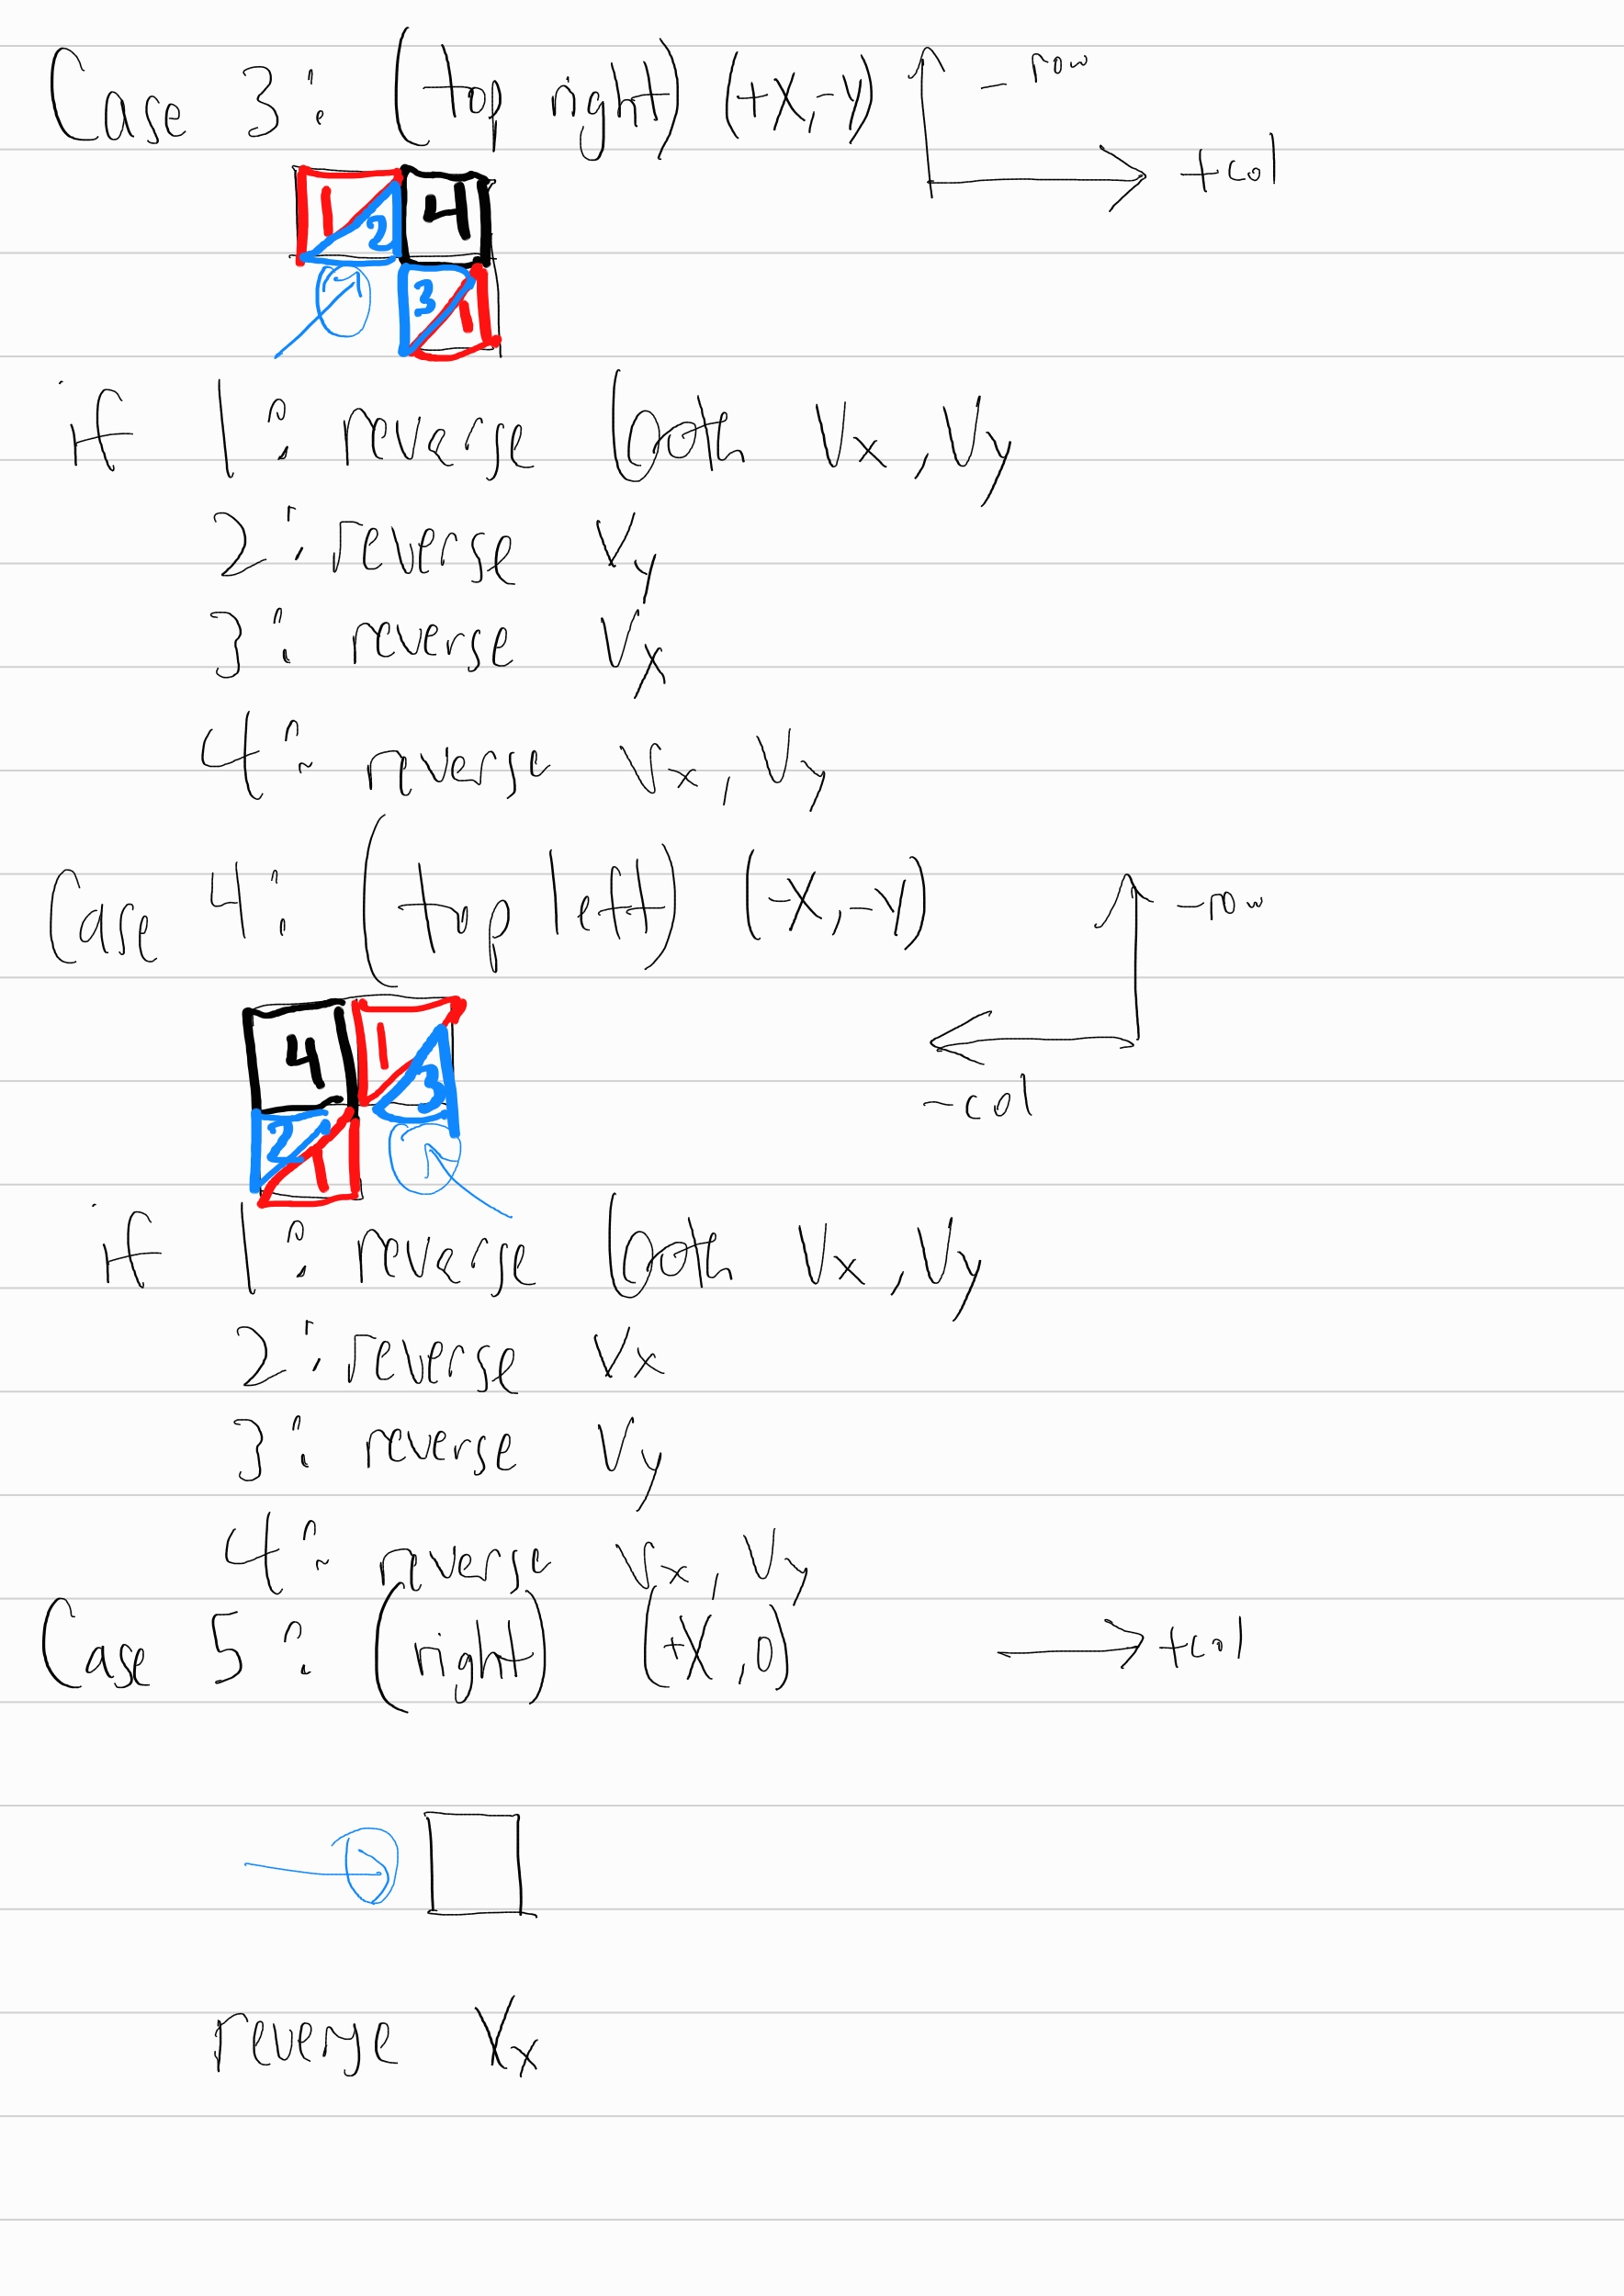 Case 3: (top right) (+X,-Y)
-row
+col
1 2 4
3 1
if 1: reverse both Vx, Vy
2: reverse Vy
3: reverse Vx
4: reverse Vx, Vy
Case 4: (top left) (-X,-Y)
-row
-col
4 1 3
2 1
if 1: reverse both Vx, Vy
2: reverse Vx
3: reverse Vy
4: reverse Vx, Vy
Case 5: (right) (+X,0)
+col
reverse Vx